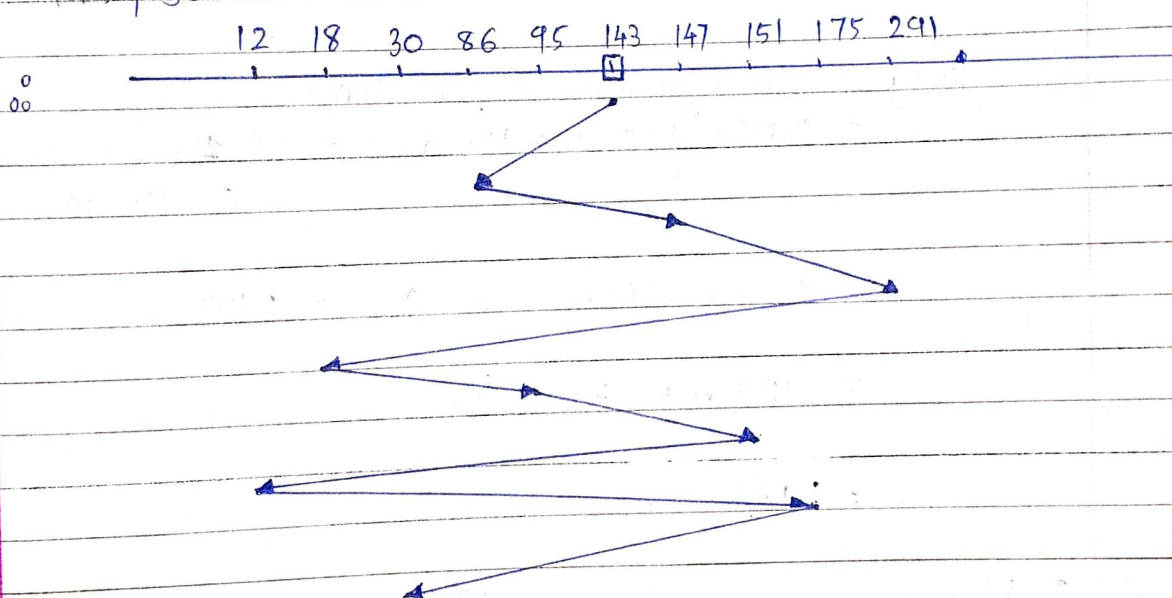 12 18 30 86 95 143 147 151 175 291
0
00